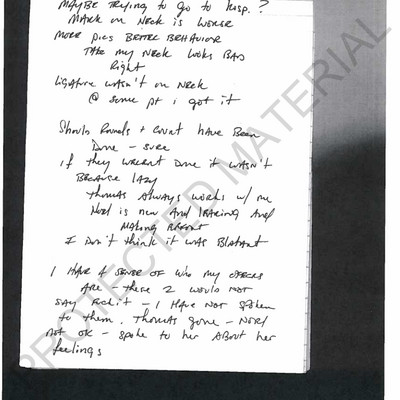 MAYBE TRYING TO GO TO HOSP. ?
MARK ON NECK IS WORSE
MORE PICS BETTER BEHAVIOR
TAKE MY NECK LOOKS BAD
Right
LIGATURE WASN'T ON NECK
@ some pt i got it
Should Rounds + Count HAVE BEEN
Done - SURE
IF they WERENT Done it WASN'T
BECAUSE lazy
thomas Always works w/ me
Noel is new And leARNING And
MAKING EFFORT
I Don't think it was BlatANT
I HAVE A SENSE OF Who my
ARE - these 2 Would NOT
SAY it - I HAVE NOT Spoken
to them. Thomas gone - Noel
not OK - Spoke to her ABOUT her
feelings
PROTECTED MATERIAL